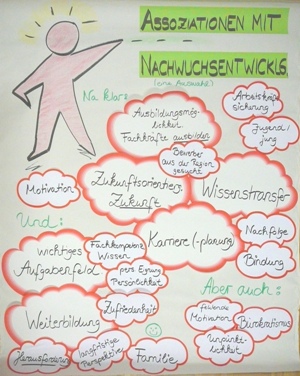 ASSOZIATIONEN MIT
NACHWUCHSENTWICKLG.
(eine Auswahl)
Na klar:
Ausbildungsmög-
lichkeit
Fachkräfte ausbilden
Arbeitskräfte
sicherung
Jugend/
jung
Bewerber
aus der Region
gesucht
Motivation
Zukunftsorientierg.
Zukunft
Wissenstransfer
Und:
wichtiges
Aufgabenfeld
Fachkompetenz
Wissen
Karriere(-planung)
Nachfolge
Bindung
pers. Eignung
Persönlichkeit
Zufriedenheit
Aber auch:
Weiterbildung
fehlende
Motivation
Bürokratismus
Unpünkt-
lichkeit
Herausforderung
langfristige
Perspektive
Familie